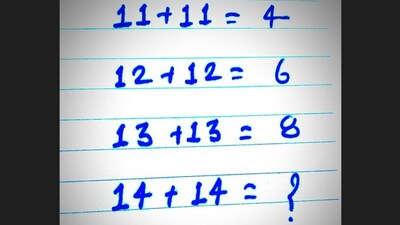 11+11 = 4
12+12 = 6
13 +13 = 8
14+14 = ?